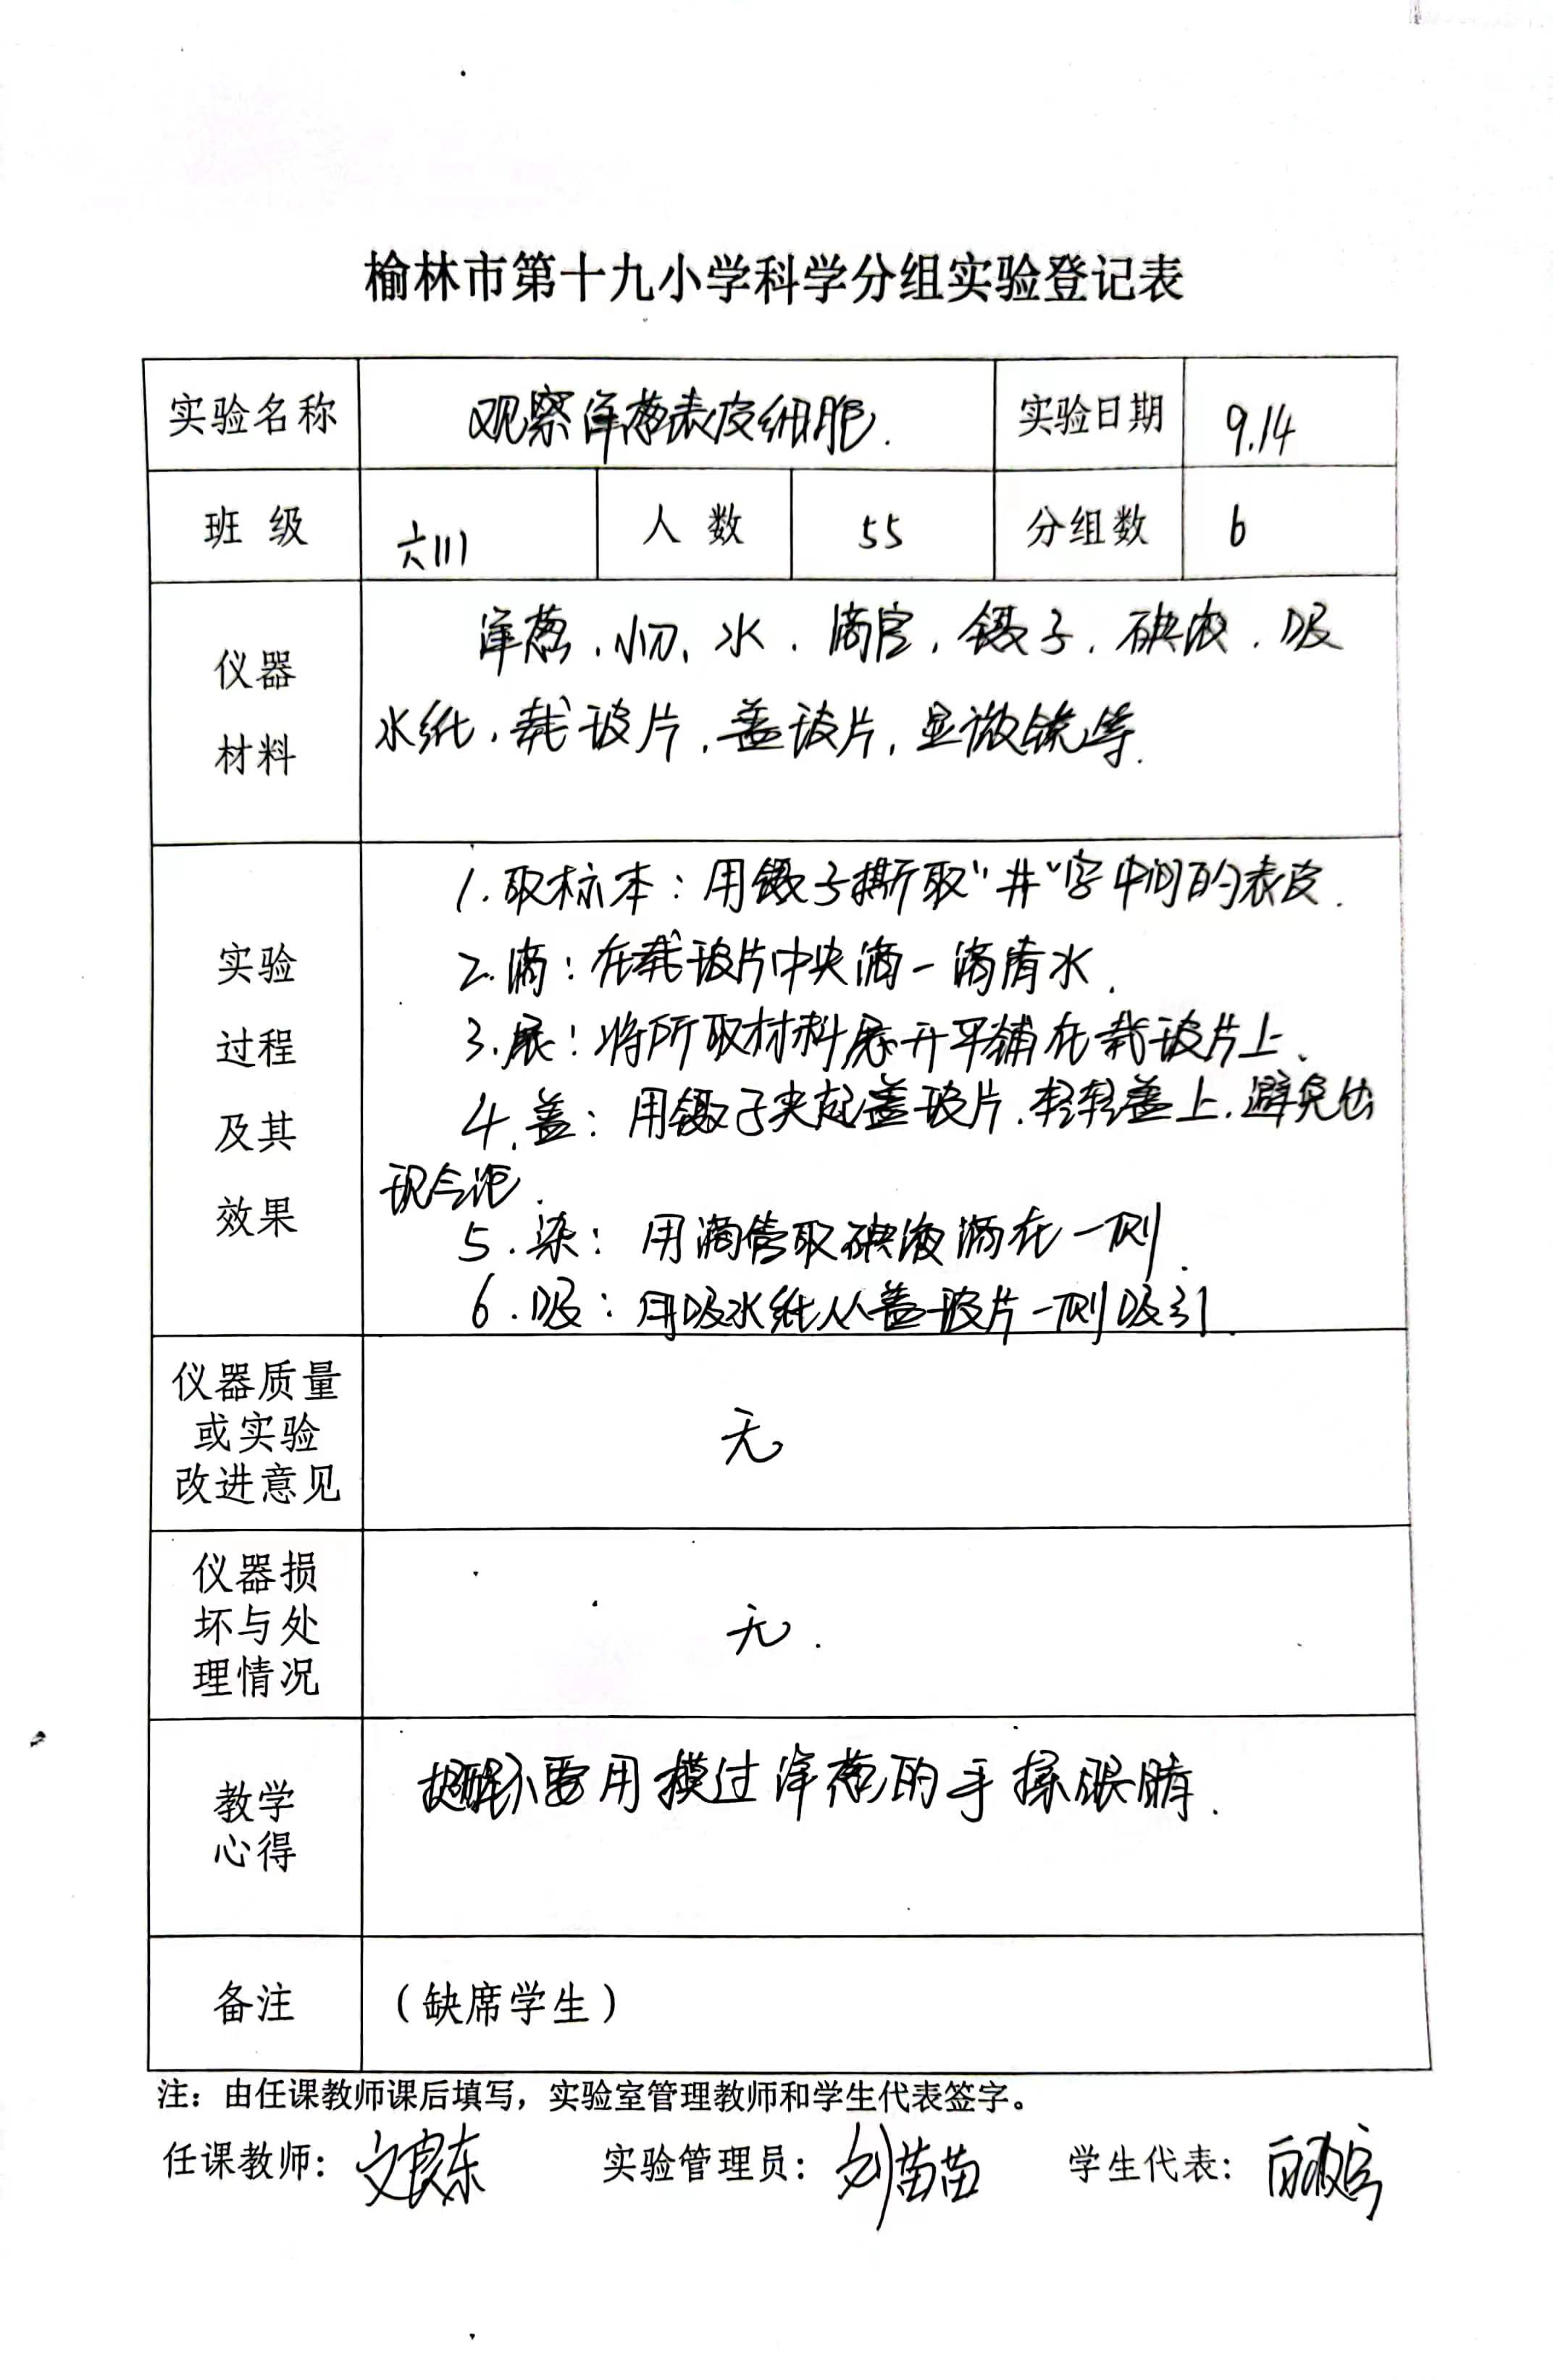 榆林市第十九小学科学分组实验登记表
实验名称 观察洋葱表皮细胞. 实验日期 9.14
班 级 六(1) 人 数 55 分组数 6
仪器
材料
洋葱、小刀、水、滴管、镊子、碘液、吸
水纸、载玻片、盖玻片、显微镜等.
实验
过程
及其
效果
1.取标本:用镊子撕取“井”字中间的表皮.
2.滴:在载玻片中央滴一滴清水.
3.展:将所取材料展开平铺在载玻片上、
4.盖:用镊子夹起盖玻片.轻轻盖上.避免出
现气泡.
5.染:用滴管取碘液滴在一侧.
6.吸:用吸水纸从盖玻片一侧吸引.
仪器质量
或实验
改进意见
无
仪器损
坏与处
理情况
无.
教学
心得
提醒不要用摸过洋葱的手揉眼睛.
备注 (缺席学生)
注:由任课教师课后填写,实验室管理教师和学生代表签字。
任课教师: 实验管理员:刘苗苗 学生代表: